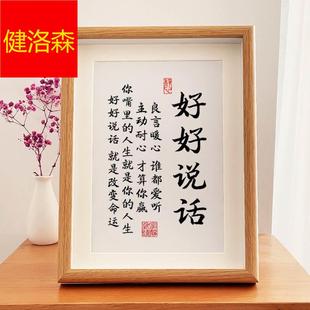 健洛森
好好说话
良言暖心 谁都爱听
主动耐心 才算你赢
你嘴里的人生就是你的人生
好好说话 就是改变命运